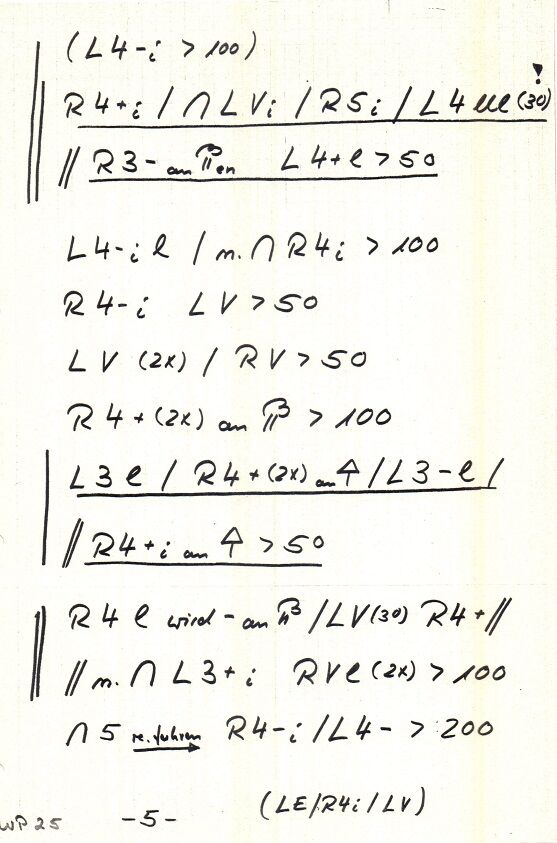 (L4-i > 100)
R4+i / ∩ LVi / R5i / L4 lll (30)
// R3- an en L4+l > 50
L4-i l / n. ∩ R4i > 100
R4-i LV > 50
LV (2x) / RV > 50
R4+(2x) an > 100
L3 l / R4+(2x) an ↑ / L3-l /
// R4+i an ↑ > 50
R4 l wird - an / LV(30) R4+ //
// n. ∩ L3+i RVl (2x) > 100
∩ 5 re. fuhren R4-i / L4- > 200
(LE/R4i/LV)
WP 25 -5-